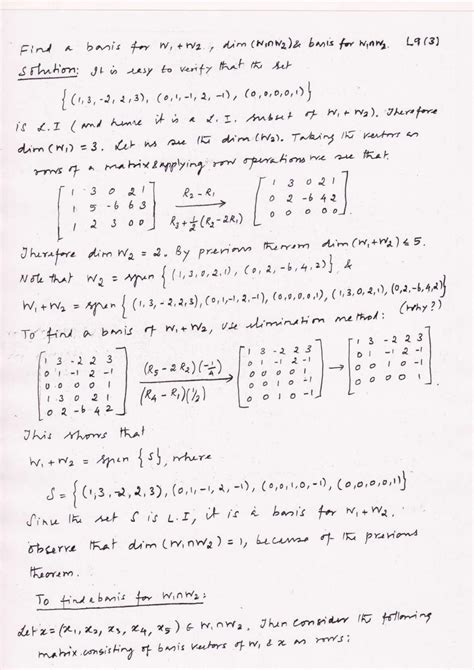 Find a basis for W1+W2, dim(W1∩W2) & basis for W1∩W2. L9(3)
Solution: It is easy to verify that the set
{(1,3,-2,2,3), (0,1,-1,2,-1), (0,0,0,0,1)}
is L.I (and hence it is a L.I. subset of W1+W2). Therefore
dim(W1) = 3. Let us see the dim(W2). Taking the vectors as
rows of a matrix & applying row operations we see that.
[1 3 0 2 1 R2-R1 [1 3 0 2 1
1 5 -6 6 3 → 0 2 -6 4 2
1 2 3 0 0] R3+½(R2-2R1) 0 0 0 0 0].
Therefore dim W2 = 2. By previous theorem dim(W1+W2) ≤ 5.
Note that W2 = span{(1,3,0,2,1), (0,2,-6,4,2)}, &
W1+W2 = span{(1,3,-2,2,3), (0,1,-1,2,-1), (0,0,0,0,1), (1,3,0,2,1), (0,2,-6,4,2)}
To find a basis of W1+W2, use elimination method: (Why?)
[1 3 -2 2 3 (R5-2R2)(-¼) [1 3 -2 2 3 [1 3 -2 2 3
0 1 -1 2 -1 → 0 1 -1 2 -1 → 0 1 -1 2 -1
0 0 0 0 1 (R4-R1)(½) 0 0 0 0 1 0 0 1 0 -1
1 3 0 2 1 0 0 1 0 -1 0 0 0 0 1
0 2 -6 4 2] 0 0 1 0 -1] 0 0 0 0 0]
This shows that
W1+W2 = span{S}, where
S = {(1,3,-2,2,3), (0,1,-1,2,-1), (0,0,1,0,-1), (0,0,0,0,1)}
Since the set S is L.I, it is a basis for W1+W2.
observe that dim(W1∩W2) = 1, because of the previous
theorem.
To find a basis for W1∩W2:
Let x = (x1, x2, x3, x4, x5) ∈ W1∩W2. Then consider the following
matrix consisting of basis vectors of W1 & x as rows: